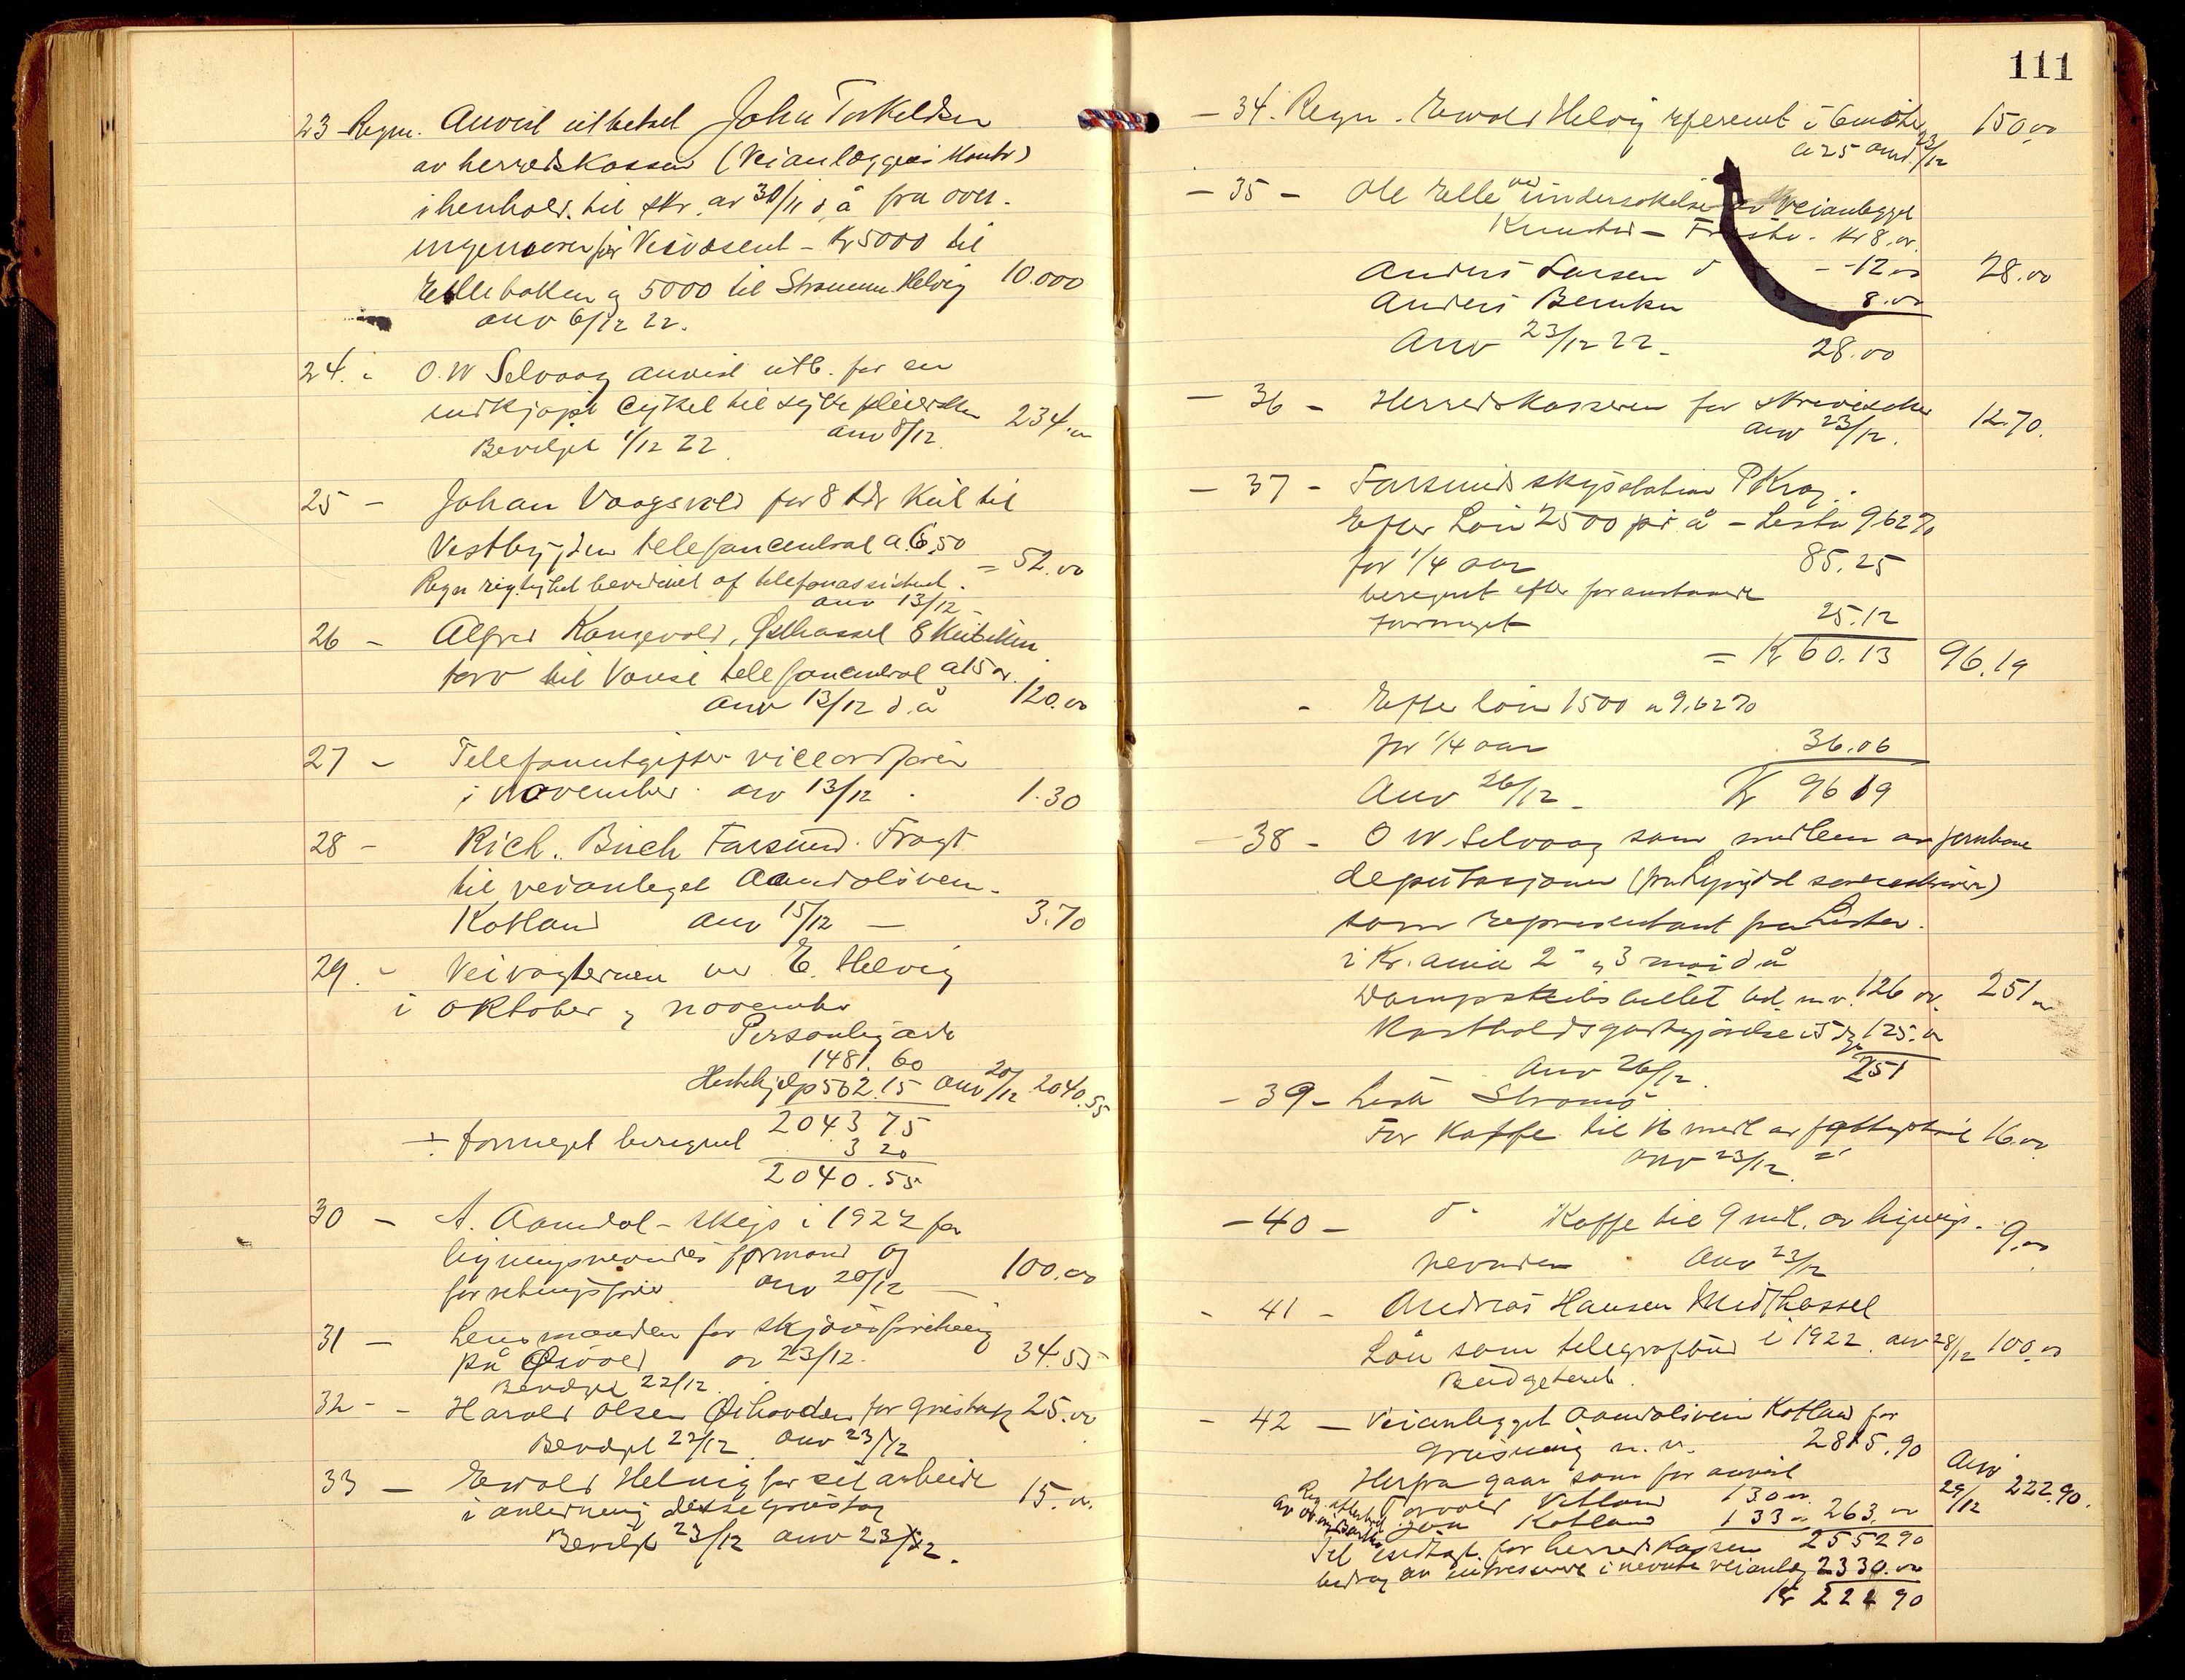 23 Regn. Anvist utbetalt John Torkeldsen
av herredskassen (Veianlæggets Konto)
i henhold til skr. av 30/11 d.å fra over-
ingeniøren for Veivæsent - Kr 5000 til
Ellebakken og 5000 til Strømmen Helvig 10.000
anv 6/12 22.
24. - O. W Selvaag anvist utb. for en
indkjøpt Cykel til sykepleiersken 234.00
Bevilget 1/12 22. anv 8/12.
25 - Johan Vaagsvold for 8 hl Kul til
Vestbygden telefoncentral a 6,50 = 52.00
Regn rigtighet bevidnet af telefonassistent.
anv 13/12 -
26 - Alfred Kongevold, Østhassel 8
torv til Vanse telefoncentral a 15 kr.
anv 13/12 d.å 120.00
27 - Telefonutgifter viceordfører
i November. anv 13/12. 1.30
28 - Rich. Buch Farsund. Fragt
til veianleget Aamdalsveien-
Kotland anv 15/12 - 3.70
29. - Veivogterne ved E. Helvig
i Oktober og november
Personlig arb
1481.60
Hestehjelp 562.15 anv 20/12 2040.55
2043 75
÷ formeget beregnet 3 20
2040.55
30 - A. Aamdal - skyss i 1922 for
ligningsnevndes formand og
forretningsfører anv 20/12 - 100.00
31 - Lensmanden for skjønsforretning
på av 23/12. 34.55
Bevilget 22/12.
32 - - Harald Olsen for grustak 25.00
Bevilget 22/12 anv 23/12
33 - Ewald Helvig for sit arbeide
i anledning dette grustag 15.00
Bevilget 23/12 anv 23/12.
111
- 34. Regn. Ewald Helvig referent i 6 møter 150.00
a 25 anv. 23/12
- 35 - Ole Elle ved undersøkelse av veianlegget
- kr 8.00
Anders Larsen d - -12.00 28.00
Anders Berntsen 8.00
Anv 23/12 22. 28.00
- 36 - Herredskasseren for skrivesaker 12.70.
anv 23/12.
- 37 - Farsunds skysstation P Krog.
Efter Løn 2500 pr å - Lista 9 62 %
for 1/4 aar 85.25
beregnet efter foranstaaende
formeget 25.12
= Kr 60.13 96.19
- Efter løn 1500 a 9,62 %
for 1/4 aar 36.06
Anv 26/12 - Kr 96 19
- 38 - O W. Selvaag som medlem av jernbane
deputasjonen
som representant fra Lista.
i Kr.ania 2 og 3 mai d å
Dampskibsbillet tid m.v. 126.00 251.00
Kostholdsgodtgjørelse i 5 dg 125.00
Anv 26/12. 251
- 39 - Strømø
For Kaffe til 16 medl av fattigstyret 16.00
anv 23/12
- 40 - d. Kaffe til 9 medl. av lignings- 9.00
nevnden Anv 23/12
- 41 - Andreas Hansen Midthassel
Løn som telegrafbud i 1922. anv 28/12 100.00
Budgetert.
- 42 - Veianlegget Aamdalsveien Kotland for
grusning m.v. 2815.90
Herfra gaar som før anvist Anv 29/12 222.90.
Torvald Vetland 130.00
Kotland 133.00 263.00
Til indtægt for herredskassen 2552 90
bidrag av interesserte i nevnte veianleg 2330.00
Kr 222 90